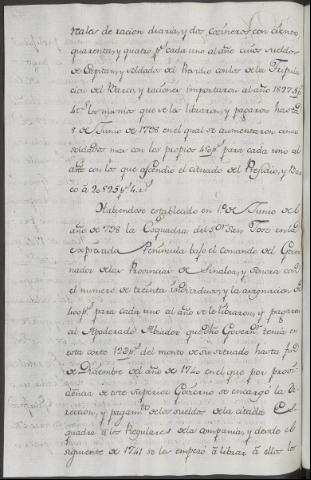 reales de racion diaria, y dos cozineros con ciento
quarenta, y quatro p.s cada uno al año cuios sueldos
de Capitan, y soldados del Presidio con los de la Tripula
cion del Barco, y raciones importaron al año 18275 p.s
4 r.s los mismos que se la libraron, y pagaron hasta
8 de Junio de 1738 en el qual se aumentaron cinco
soldados mas con los propios 450 p.s para cada uno al
año con los que ascendio el cituado del Presidio, y Bar
co à 20525 p.s 4 r.s
Haviendose establecido en 1.º de Junio de el
año de 738 la Esquadra del s.or Sn Jose en la
expresada Peninsula bajo el comando del Gover
nador de las Provincias de Sinaloa, y Sonora con
el numero de treinta individuos, y la asignacion de
400 p.s para cada uno al año se le libraron, y pagaron
al Apoderado Aviador que dho Governd.r tenia en
esta corte 12 p.s del monto de su situado hasta fin
de Diciembre del año de 1740 en el que por provi
dencia de este Superior Govierno se encargó la Di
reccion, y pagam.to de los sueldos de la citada Es
quadra à los Regulares de la Compania, y desde el
siguiente de 1741 se les empezó à librar à ellos los